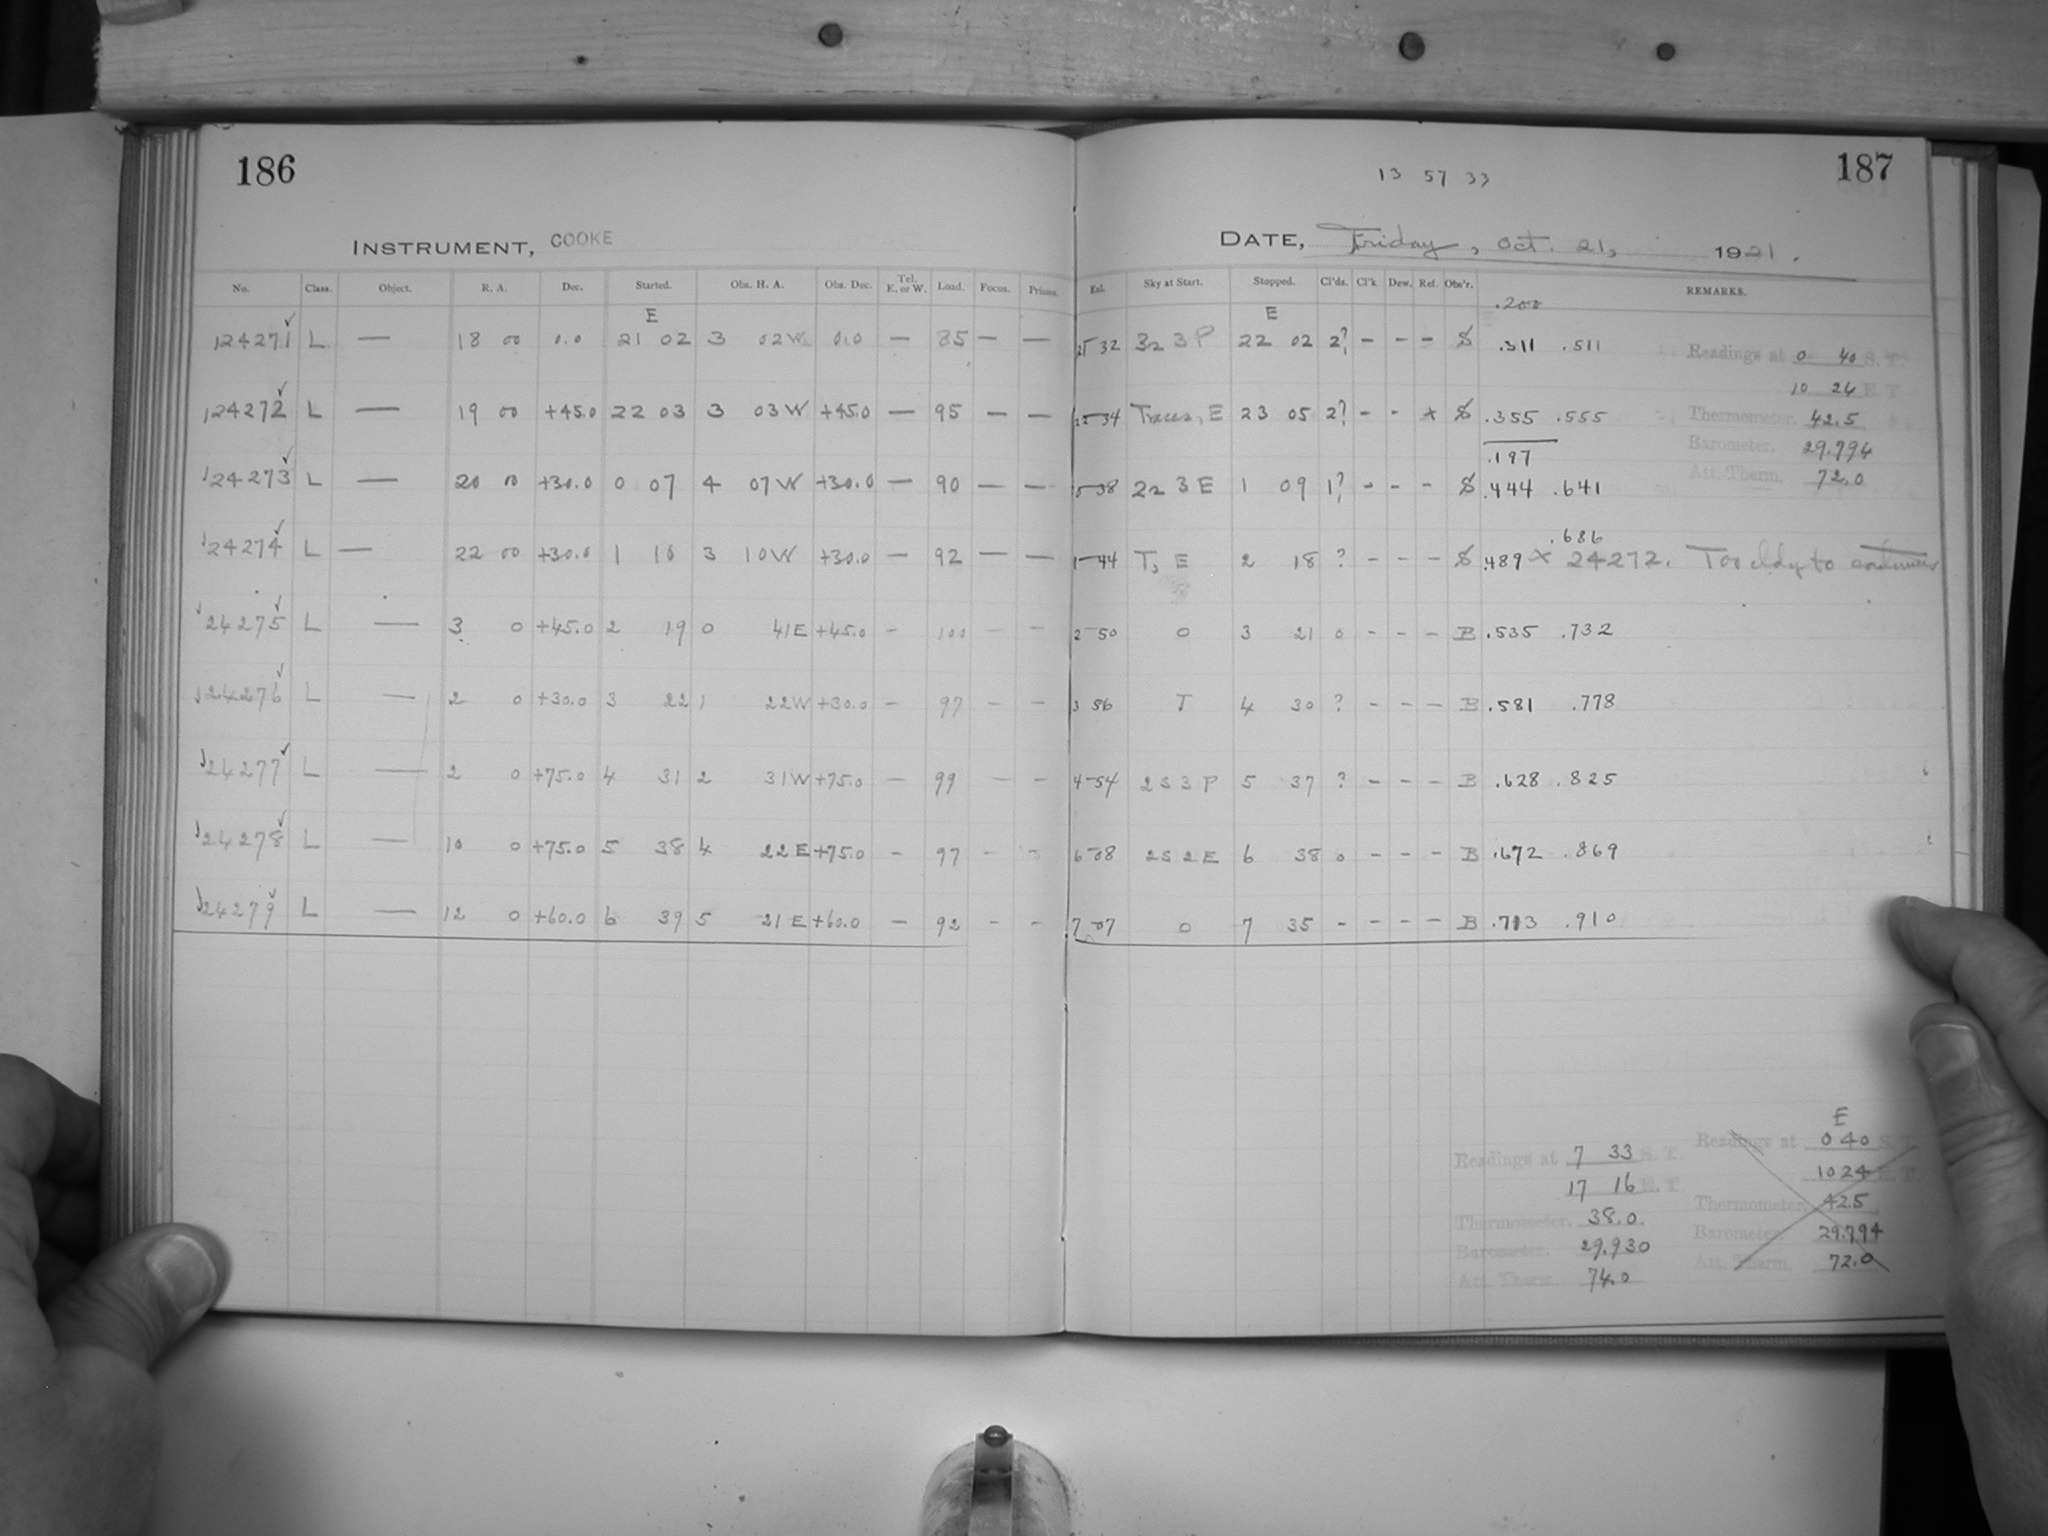 186
INSTRUMENT, COOKE
No. Class. Object. R. A. Dec. Started. Obs. H. A. Obs. Dec. Tel. E. or W. Load. Focus. Prisms.
E
24271 L — 18 00 0.0 21 02 3 02W 0.0 — 85 — —
24272 L — 19 00 +45.0 22 03 3 03W +45.0 — 95 — —
24273 L — 20 00 +30.0 0 07 4 07W +30.0 — 90 — —
24274 L — 22 00 +30.0 1 10 3 10W +30.0 — 92 — —
24275 L — 3 0 +45.0 2 19 0 41E +45.0 – 100 – –
24276 L — 2 0 +30.0 3 22 1 22W +30.0 – 97 – –
24277 L — 2 0 +75.0 4 31 2 31W +75.0 – 99 – –
24278 L — 10 0 +75.0 5 38 4 22E +75.0 – 97 –
24279 L — 12 0 +60.0 6 39 5 21E +60.0 – 92 – –
187
13 57 33
DATE, Friday, Oct. 21, 1921.
Exl. Sky at Start. Stopped. Cl'ds. Cl'k Dew. Ref. Obs'r. REMARKS.
E .200
32 323P 22 02 2? – – – S .311 .511
34 Traces, E 23 05 2? – – x S .355 .555
.197
38 223E 1 09 1? – – – S .444 .641
.686
1–44 T, E 2 18 ? – – – S .489 x 24272. Too cldy to continue
2–50 0 3 21 0 – – – B .535 .732
3 56 T 4 30 ? – – – B .581 .778
4–54 2S3P 5 37 ? – – – B .628 .825
6–08 2S2E 6 38 0 – – – B .672 .869
7–07 0 7 35 – – – – B .713 .910
Readings at 0 40 S. T.
10 24 E. T.
Thermometer. 42.5
Barometer. 29.794
Att. Therm. 72.0
Readings at 7 33 S. T.
17 16 E. T
Thermometer. 38.0
Barometer. 29.930
Att. Therm. 74.0
E
Readings at 0 40 S. T.
10 24 E. T.
Thermometer. 42.5
Barometer. 29.794
Att. Therm. 72.0